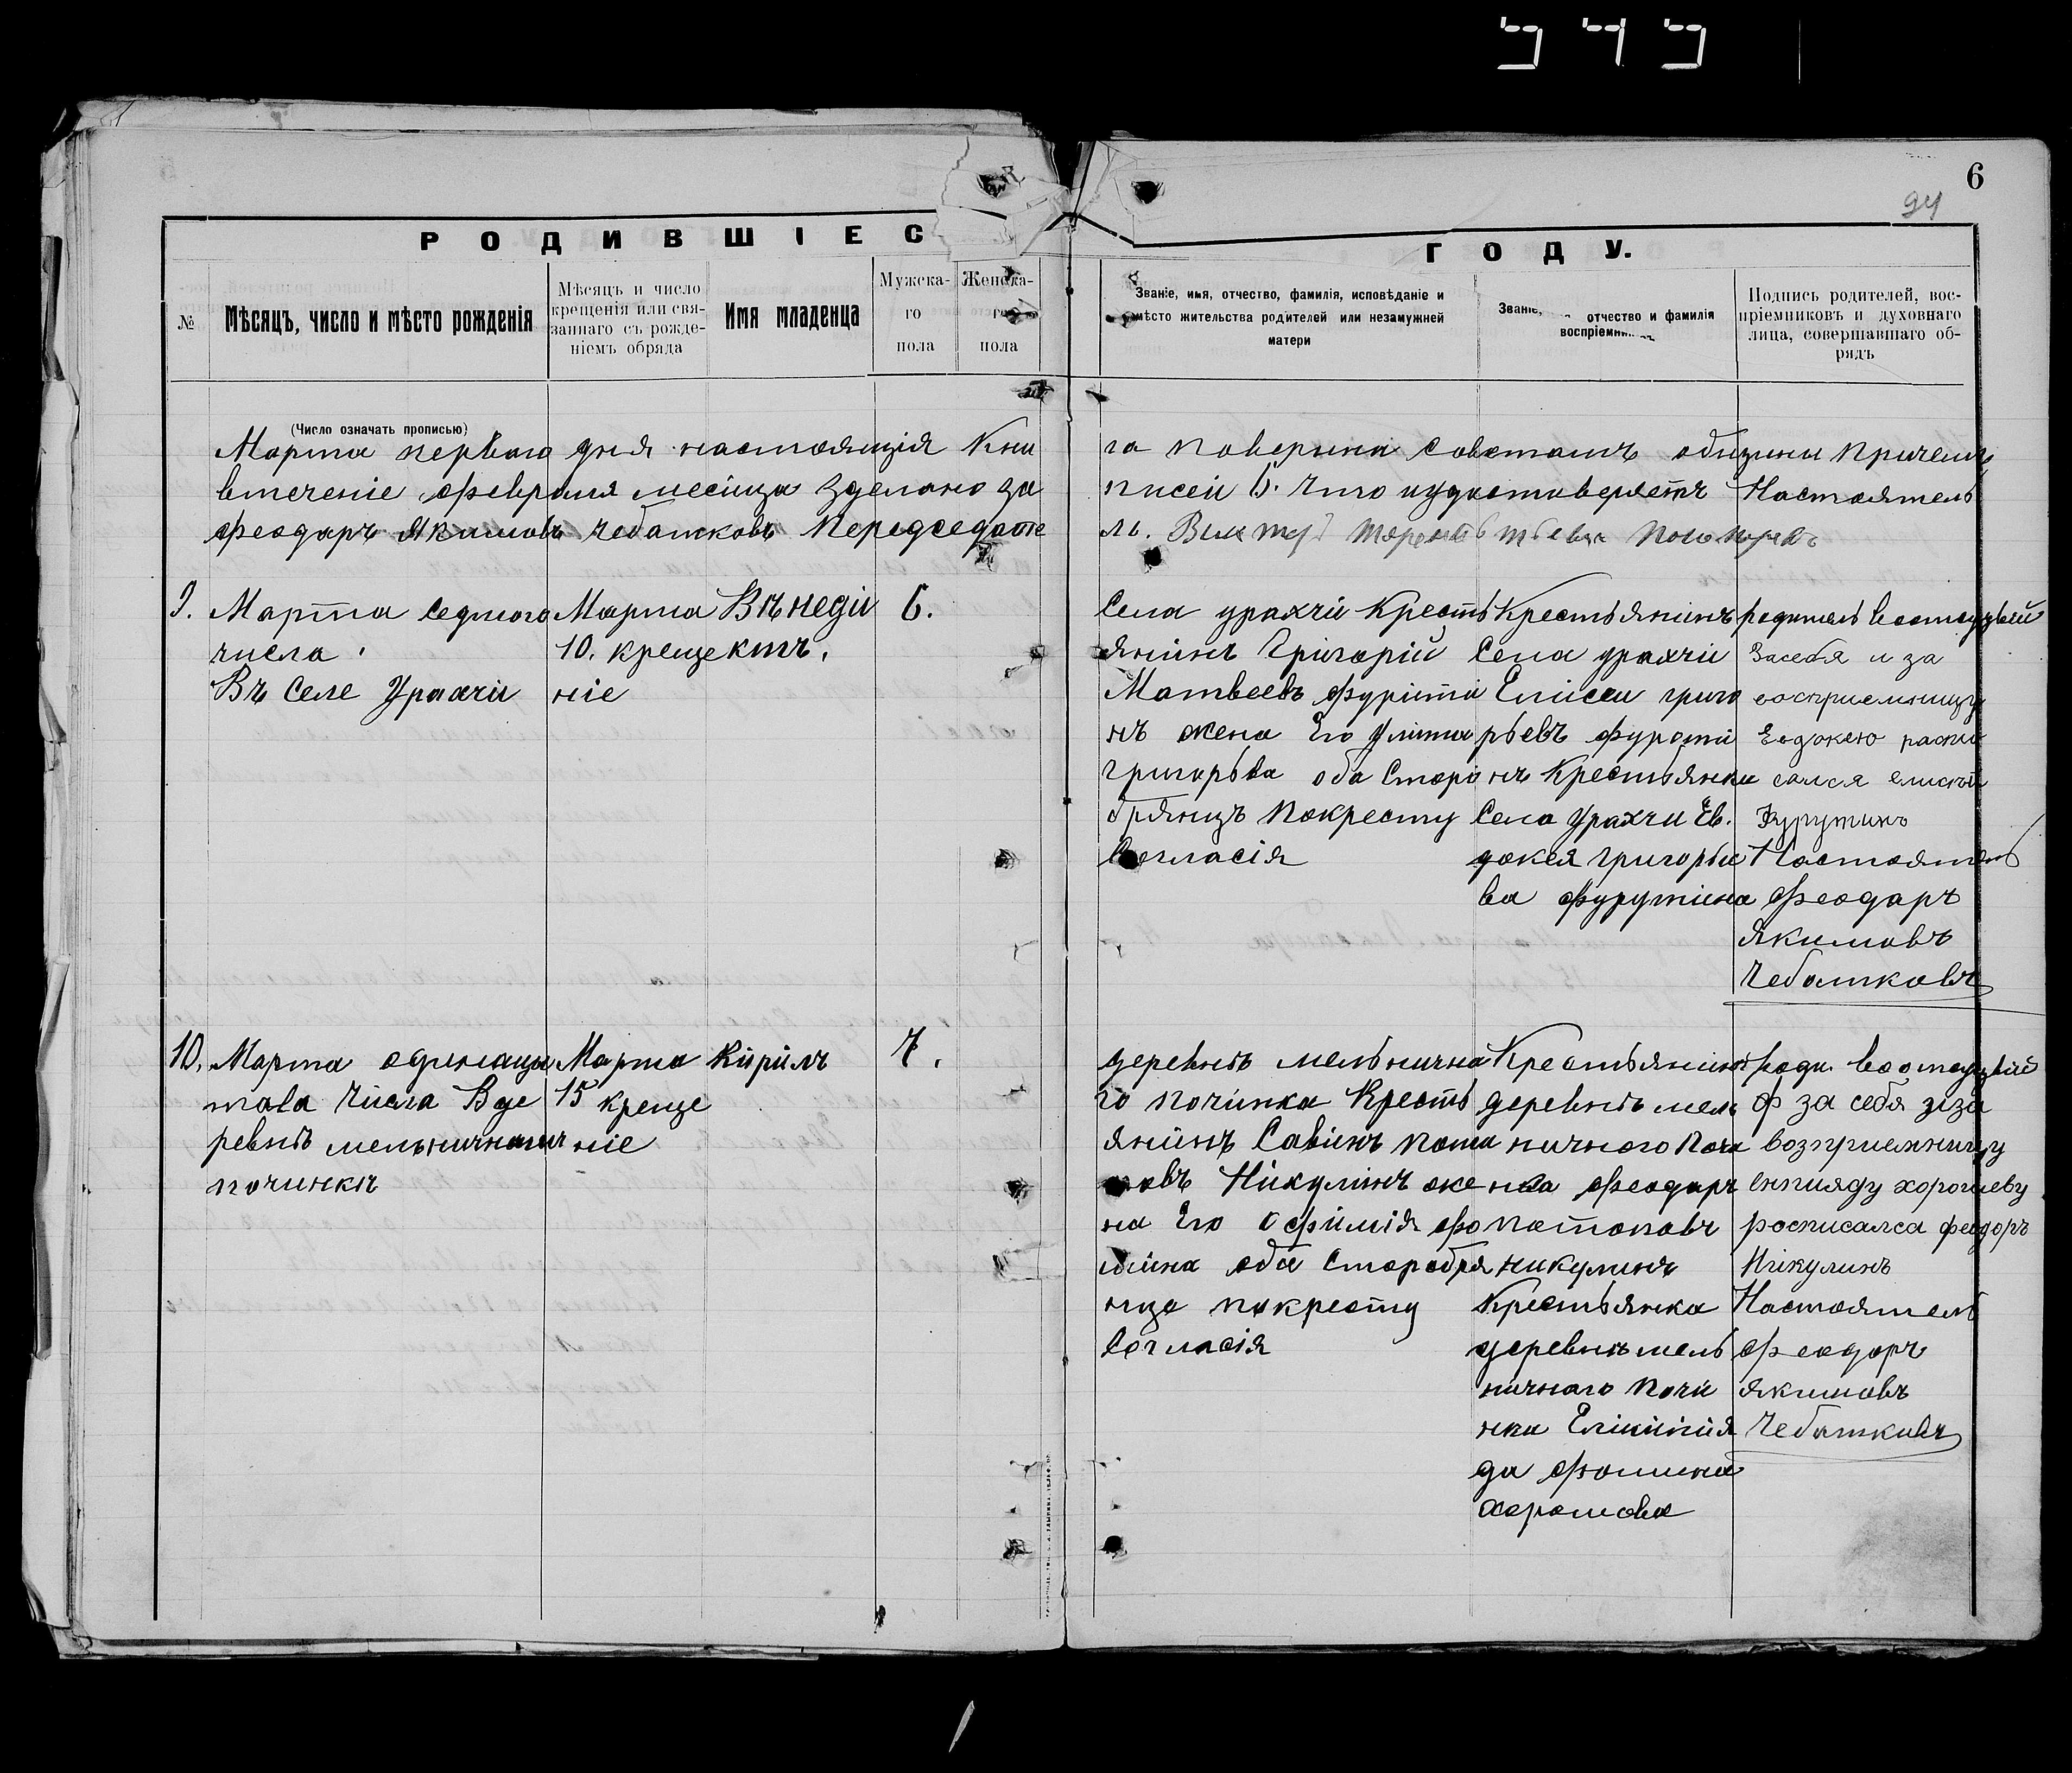 6
94
РОДИВШІЕС
ГОДУ.
№
Мѣсяцъ, число и мѣсто рожденія
Мѣсяцъ и число крещенія или связаннаго съ рожденіемъ обряда
Имя младенца
Мужскаго пола
Женскаго пола
Званіе, имя, отчество, фамилія, исповѣданіе и мѣсто жительства родителей или незамужней матери
Званіе, отчество и фамилія
Подпись родителей, воспріемниковъ и духовнаго лица, совершавшаго обрядъ
(Число означать прописью)
Марта первого дня настоящія Кни га поверина Советамъ общины Причемъ
втеченіе февраля месяца зделано за писеи 5. Что иудостоверяетъ Настоятель
Феодаръ Якимовъ Чебатковъ Передседате ль.
9.
Марта Седмого
числа
Въ Селе Урахчи
Марта
10. креще
ніе
Венеди
ктъ.
6.
Села урахчи Кресть
янинъ Григорій
Матвеевъ Фуріти
нъ жена Его Улита
Григорьва оба Старо
брянцъ Покресту
Согласія
Крестьянинъ
Села урахчи
Елисеи Григо
рьевъ Фурити
нъ Крестьянка
Села Урахчи Ев.
докея Григорье
ва Фурутина
родитель
Засебя и за
восприемницу
Евдокею распи
сался елисѣй
Фурутинъ
Настоятель
Феодаръ
Якимовъ
Чебатковъ
10.
Марта одинаца
това Числа Вде
ревнѣ мельничномъ
починкѣ
Марта
15 креще
ніе
Кирилъ
7.
деревнѣ мельнично
го починка Кресть
янинъ Савинъ Пота
повъ Никулинъ же
на Его Офимія Фо
мина оба Старобря
нца покресту
Согласія
Крестьянинъ
деревнѣ мель
ничного Почи
нка Феодаръ
Потаповъ
никулинъ
Крестьянка
деревнѣ мель
ничнаго Почи
нка
да Фомина
Харошова
за себя
возприемницу
хорошеву
росписался феодоръ
Никулинъ
Настоятель
Феодоръ
Якимовъ
Чебатковъ